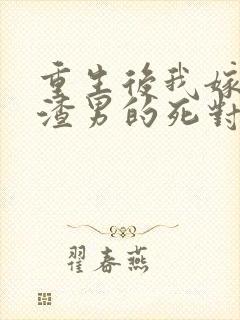 重生後我嫁
渣男的死對
翟春燕